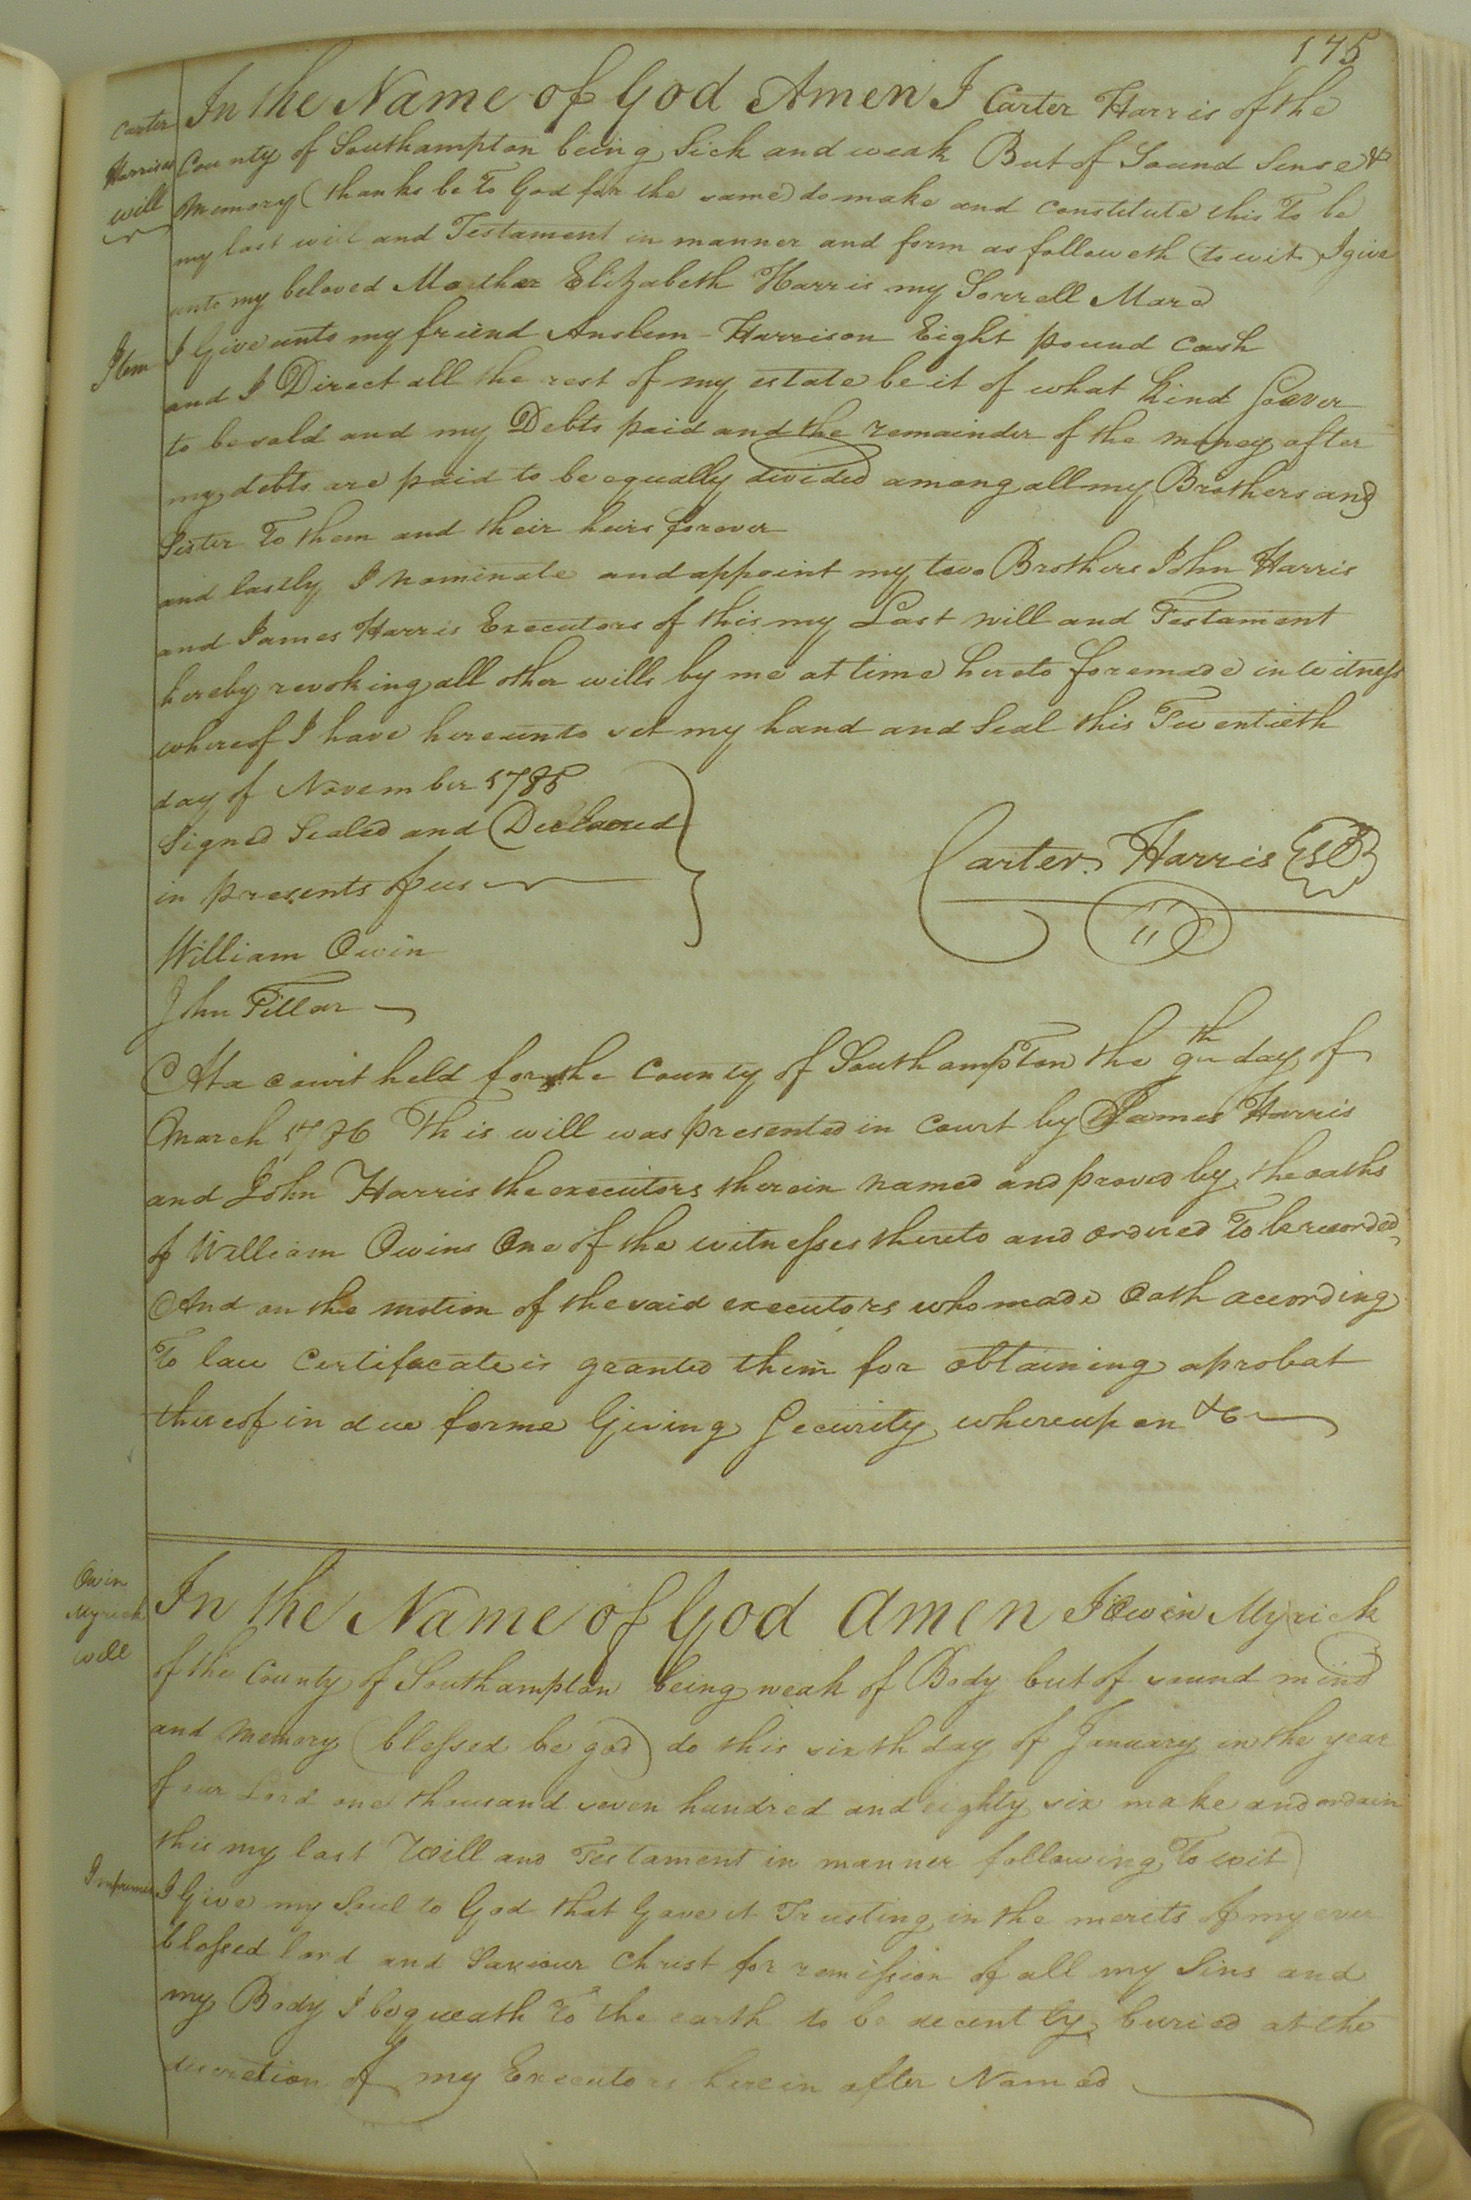 175
Carter
Harrises
will
In the Name of God Amen I Carter Harris of the
County of Southampton being Sick and weak But of Sound Sense &
Memory (thanks be To God for the same) do make and constitute this To be
my last will and Testament in manner and form as followeth (to wit) I give
unto my beloved Mother Elizabeth Harris my Sorrell Mare
Item I Give unto my friend Anslem Harrison Eight pound cash
and I Direct all the rest of my estate be it of what kind Soever
to be sold and my Debts paid and the remainder of the money after
my debts are paid to be equally divided among all my Brothers and
Sister To them and their heirs forever
and lastly I nominate and appoint my two Brothers John Harris
and James Harris Executors of this my Last will and Testament
hereby revoking all other wills by me at time hereto fore made in witness
whereof I have hereunto set my hand and Seal this Twentieth
day of November 1785
Signed Sealed and Declared
in presents of us
Carter Harris
William Owin
John Pillar
At a court held for the County of Southampton the 9th day of
March 1786 This will was presented in Court by James Harris
and John Harris the executors therein named and proved by the oaths
of William Owins One of the witnesses thereto and ordered To be recorded
And on the motion of the said executors who made Oath according
To law Certifacate is granted them for obtaining aprobat
thereof in due forme Giving Security whereupon &c
Owin
Myrick
will
In the Name of God Amen I Owin Myrick
of the County of Southampton being weak of Body but of sound mind
and memory (blessed be god) do this sixth day of January in the year
of our Lord one thousand seven hundred and eighty six make and ordain
this my last Will and Testament in manner following To wit)
Imprimes I Give my Soul to God that Gave it Trusting in the merits of my ever
blessed lord and Saviour Christ for remission of all my Sins and
my Body I bequeath To the earth to be decently buried at the
discretion of my Executors herein after Named